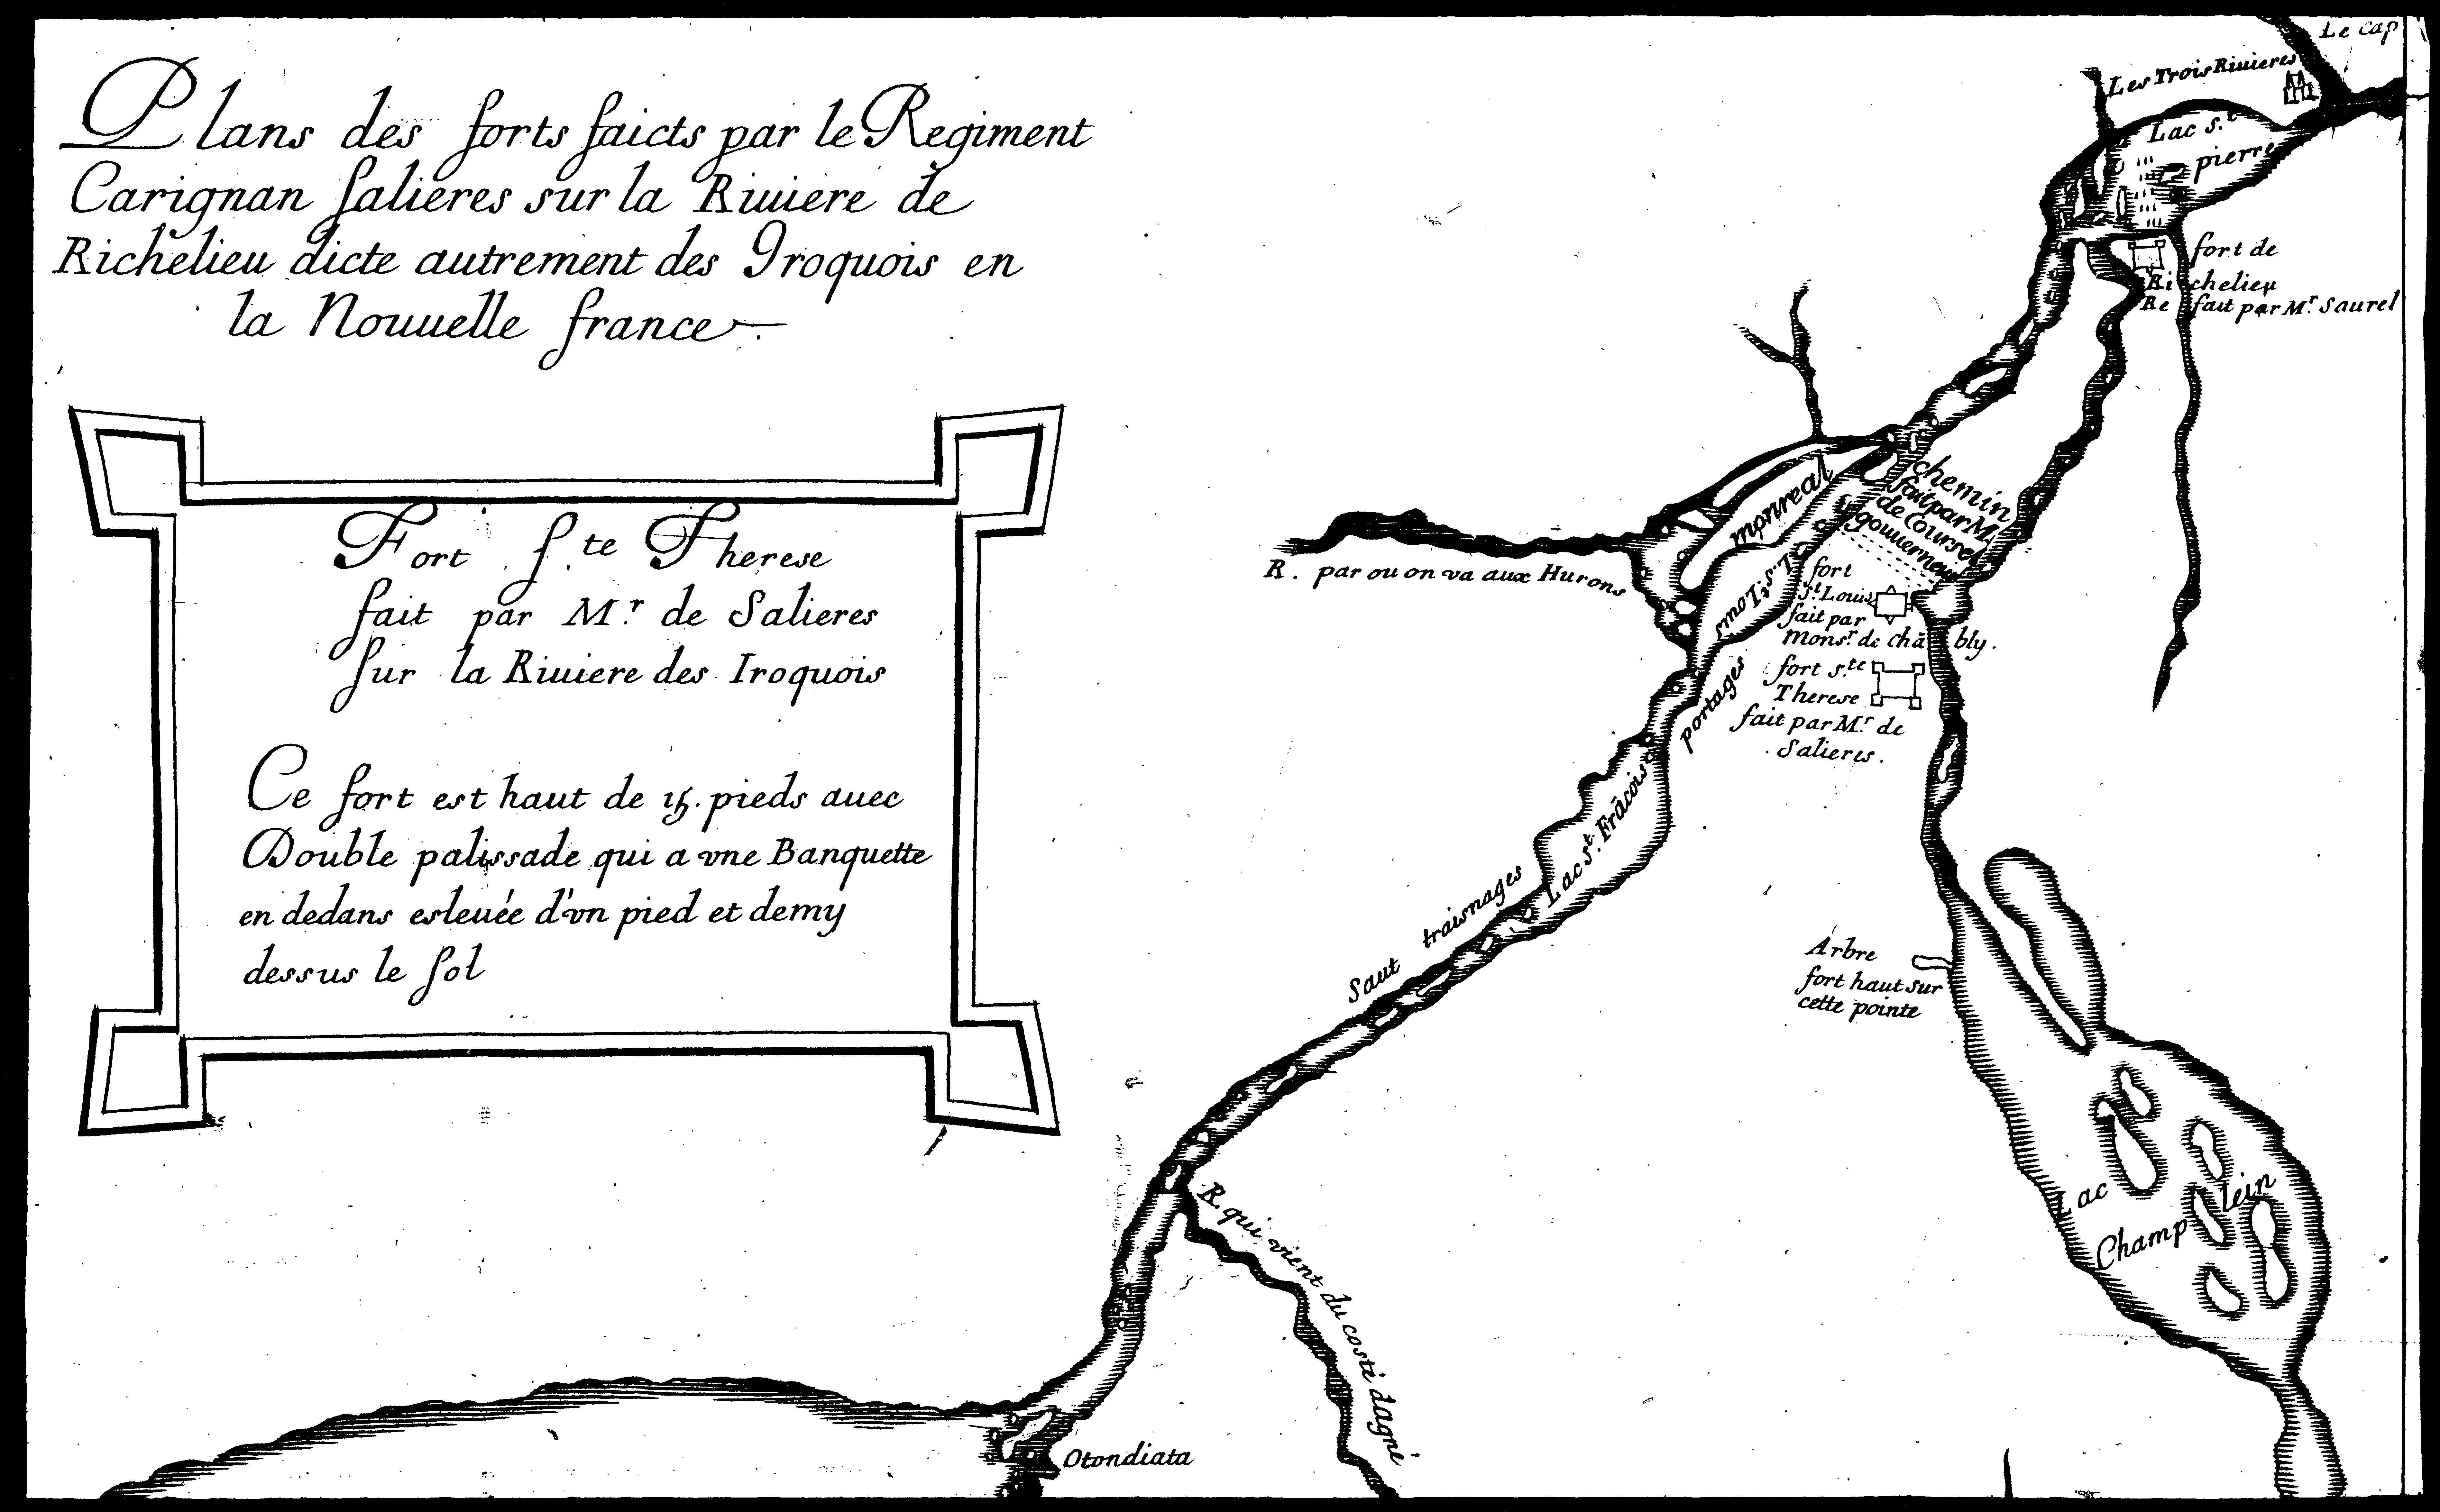 Plans des forts faicts par le Regiment
Carignan Salieres sur la Riuiere de
Richelieu dicte autrement des Iroquois en
la Nouuelle france
Fort S.te Therese
fait par M.r de Salieres
Sur la Riuiere des Iroquois
Ce fort est haut de 15. pieds auec
Double palissade qui a vne Banquette
en dedans esleuée d'vn pied et demy
dessus le Sol
Le Cap
Les Trois Riuieres
Lac S.t
pierre
fort de
Richelieu
Refait par M.r Saurel
chemin
fait par M.
de Coursel
gouuerneur
monreal
L. S.t Louis
R. par ou on va aux Hurons
fort
S.t Louis
fait par
Mons.r de chābly.
fort S.te
Therese
fait par M.r de
Salieres.
portages
Lac S.t Frācois
traisnages
Saut
Arbre
fort haut sur
cette pointe
Lac
Champlein
R. qui vient du costé dagné
Otondiata